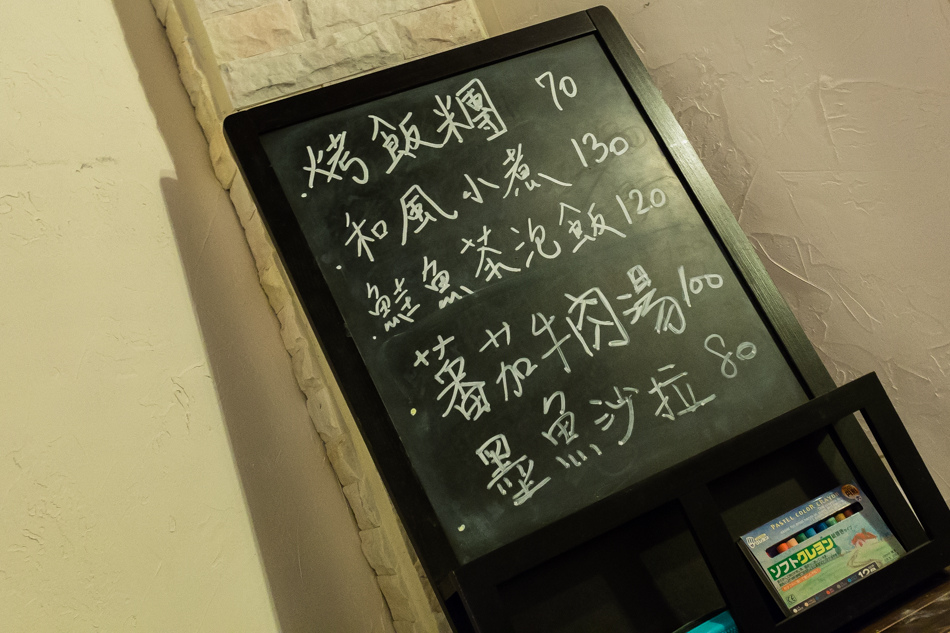 烤飯糰 70
和風小煮 130
鮭魚茶泡飯 120
蕃茄牛肉湯 100
墨魚沙拉 80
PASTEL COLOR CRAYO
ソフトクレヨン
12色